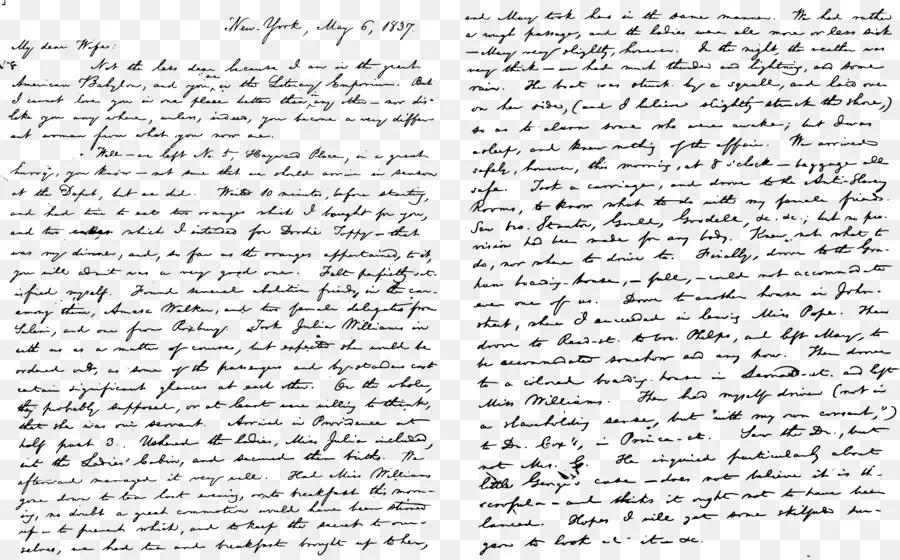 New-York, May 6, 1837.
My dear Wife:
Not the less dear, because I am in the great
American Babylon, and you are in the Literary Emporium. But
I cannot love you in one place better than any other — nor dis-
like you any where, unless, indeed, you become a very differ-
ent woman from what you now are.
Well — we left No. 5, Hayward Place, in a great
hurry, you know — not sure that we should arrive in season
at the Depot, but we did. Waited 10 minutes before starting,
and had time to eat two oranges which I bought for you,
and two cakes which I intended for Dordie Toppy — that
was my dinner, and, so far as the oranges appertained to it,
you will admit was a very good one. Felt perfectly sat-
isfied myself. Found several abolition friends in the car —
among them, Amasa Walker, and two female delegates from
Salem, and one from Roxbury. Took Julia Williams in
with us as a matter of course, but expected she would be
ordered out, as some of the passengers and by-standers cast
certain significant glances at each other. On the whole,
they probably supposed, or at least were willing to think,
that she was our servant. Arrived in Providence at
half past 3. Ushered the ladies, Miss Julia included,
into the Ladies' Cabin, and secured them births. We
afterward managed it very well. Had Miss Williams
gone down to tea last evening, or to breakfast this morn-
ing, no doubt a great commotion would have been stirred
up — to prevent which, and to keep the secret to our-
selves, we had tea and breakfast brought up to her,
and Mary took hers in the same manner. We had rather
a rough passage, and the ladies were all more or less sick
— Mary very slightly, however. In the night, the weather was
very thick — we had much thunder and lightning, and some
rain. The boat was struck by a squall, and laid over
on her side, (and I believe slightly struck the shore,)
so as to alarm some who were awake; but I was
asleep, and knew nothing of the affair. We arrived
safely, however, this morning, at 8 o'clock — baggage all
safe. Took a carriage, and drove to the Anti-Slavery
Rooms, to know what to do with my female friends.
Saw bro. Stanton, Gould, Goodell, &c. &c.; but no pro-
vision had been made for any body. Knew not what to
do, nor where to drive to. Finally, drove to the Gra-
ham boarding-house, — full, — could not accommodate
even one of us. Drove to another house in John-
street, where I succeeded in leaving Miss Pope. Then
drove to Reed-st. to bro. Phelps, and left Mary, to
be accommodated somehow and any how. Then drove
to a colored boarding-house in Leonard-st. and left
Miss Williams. Then had myself driven (not in
a slaveholding sense, but "with my own consent,")
to Dr. Cox's, in Prince-st. Saw the Dr., but
not Mrs. C. He inquired particularly about
little George's case — does not believe it is
scrofula — and thinks it ought not to have been
lanced. Hopes I will get some skilful sur-
geon to look at it — &c.